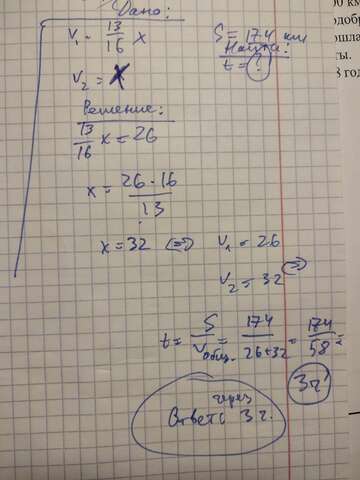 Дано:
V₁ = 13/16 x
S = 174 км
Найти:
t = ?
V₂ = x
Решение:
13/16 x = 26
x = 26 · 16 / 13
x = 32 => V₁ = 26
V₂ = 32 =>
t = S / Vобщ. = 174 / 26+32 = 174 / 58 =
3ч
через
Ответ: 3 ч.